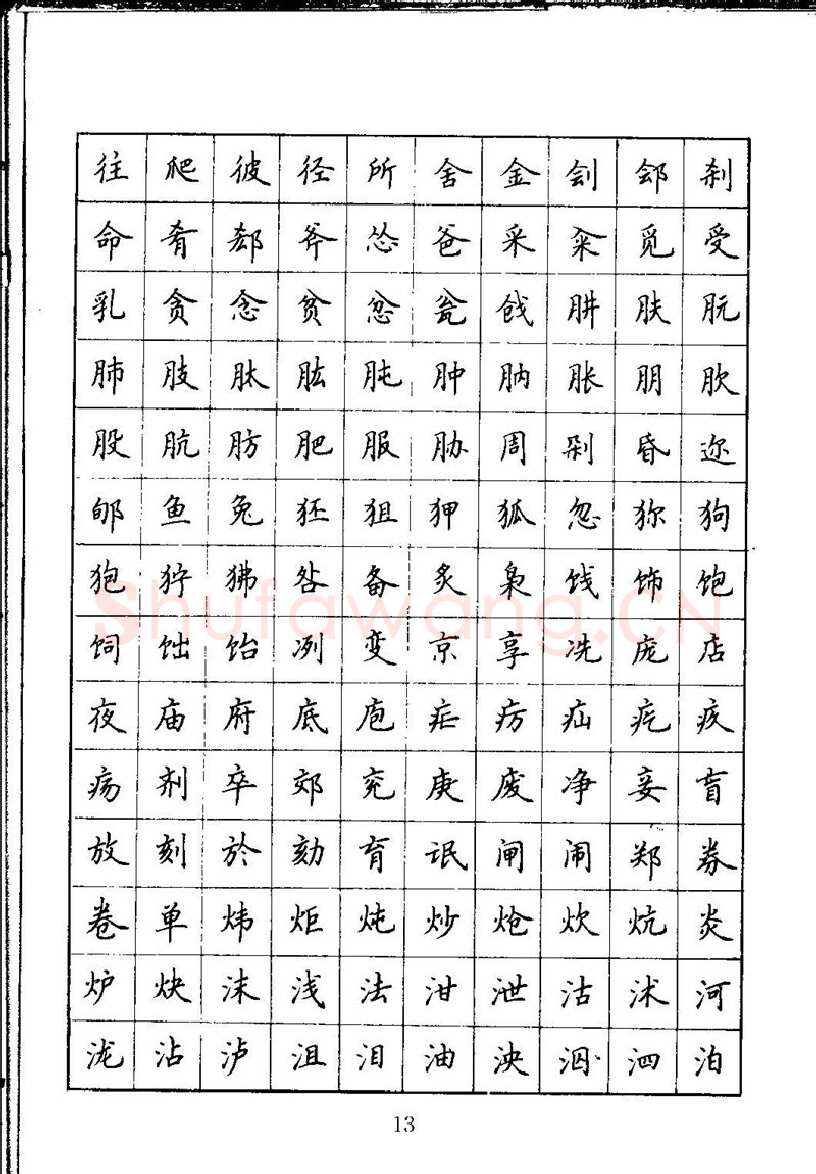 往 爬 彼 径 所 舍 金 刽 郐 刹
命 肴 郄 斧 怂 爸 采 籴 觅 受
乳 贪 念 贫 忿 瓮 戗 肼 肤 朊
肺 肢 肽 肱 肫 肿 肭 胀 朋 肷
股 肮 肪 肥 服 胁 周 剁 昏 迩
郇 鱼 兔 狉 狙 狎 狐 忽 狝 狗
狍 狞 狒 咎 备 炙 枭 饯 饰 饱
饲 饳 饴 冽 变 京 享 冼 庞 店
夜 庙 府 底 庖 疟 疠 疝 疙 疚
疡 剂 卒 郊 兖 庚 废 净 妾 盲
放 刻 於 劾 育 氓 闸 闹 郑 券
卷 单 炜 炬 炖 炒 炝 炊 炕 炎
炉 炔 沫 浅 法 泔 泄 沽 沭 河
泷 沾 泸 沮 泪 油 泱 泅 泗 泊
13
Shufawang.CN